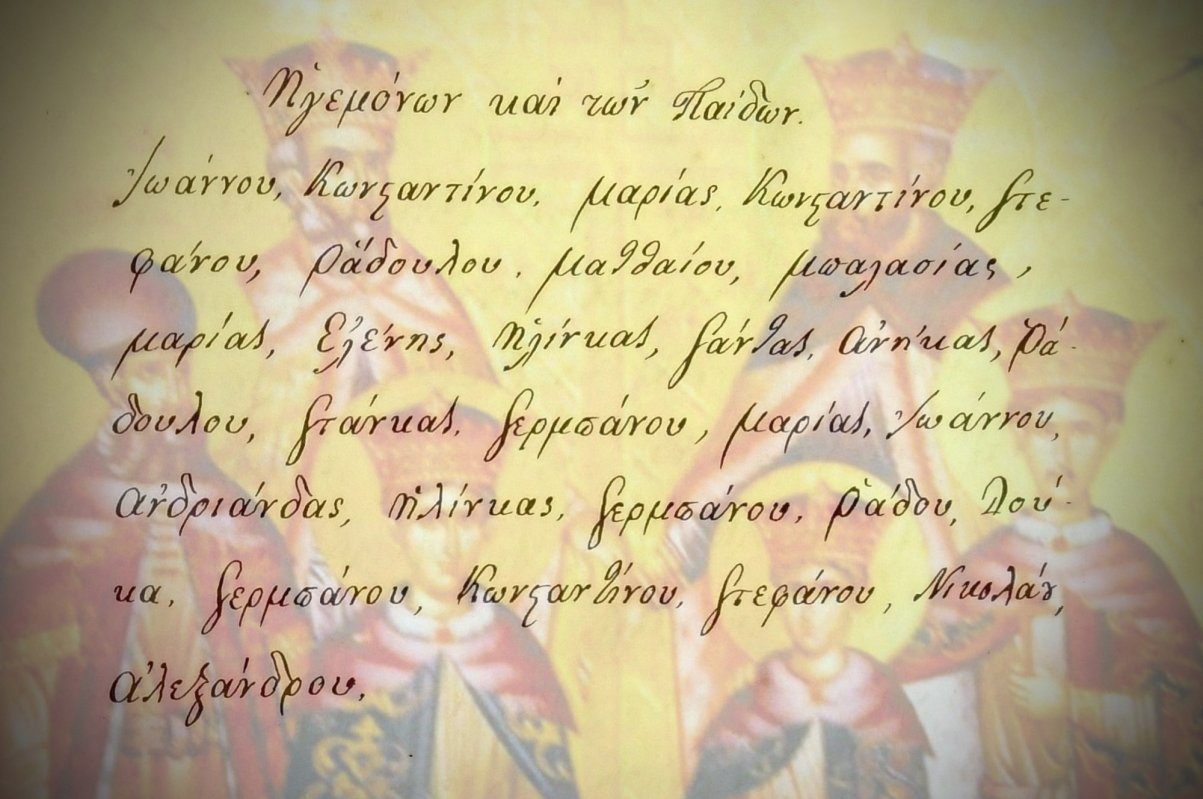 Ἡγεμόνων καὶ τῶν Παίδων.
Ἰωάννου, Κωνϛαντίνου, μαρίας, Κωνϛαντίνου, Στε-
φάνου, ῥάδουλου, μαθθαίου, μπαλασίας,
μαρίας, Ἑλένης, Ἠλίνκας, Σάνθας, ἀνήκας, Ῥά-
δουλου, Στάνκας, Σερμπάνου, μαρίας, Ἰωάννου,
ἀνδριάνδας, Ἠλίνκας, Σερμπάνου, Ῥάδου, Δού-
κα, Σερμπάνου, Κωνϛανθίνου, Στεφάνου, Νικολάου,
ἀλεξάνδρου,